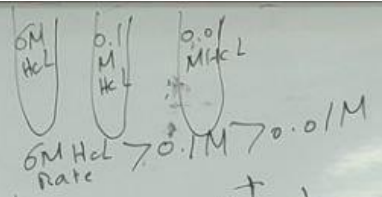 6M
HCL
0.1
M
HCL
0.0
MHCL
6M HCL > 0.1M > 0.01M
Rate
+